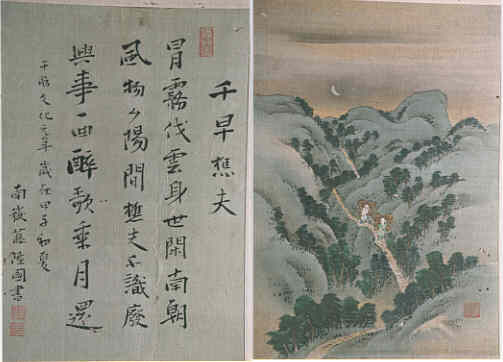 千早樵夫
冒霧伐雲身世閑南朝
風物夕陽間樵夫不識廢
興事一曲醉歌乘月還
于時文化元年歳在甲子初夏
南嶽藤國書